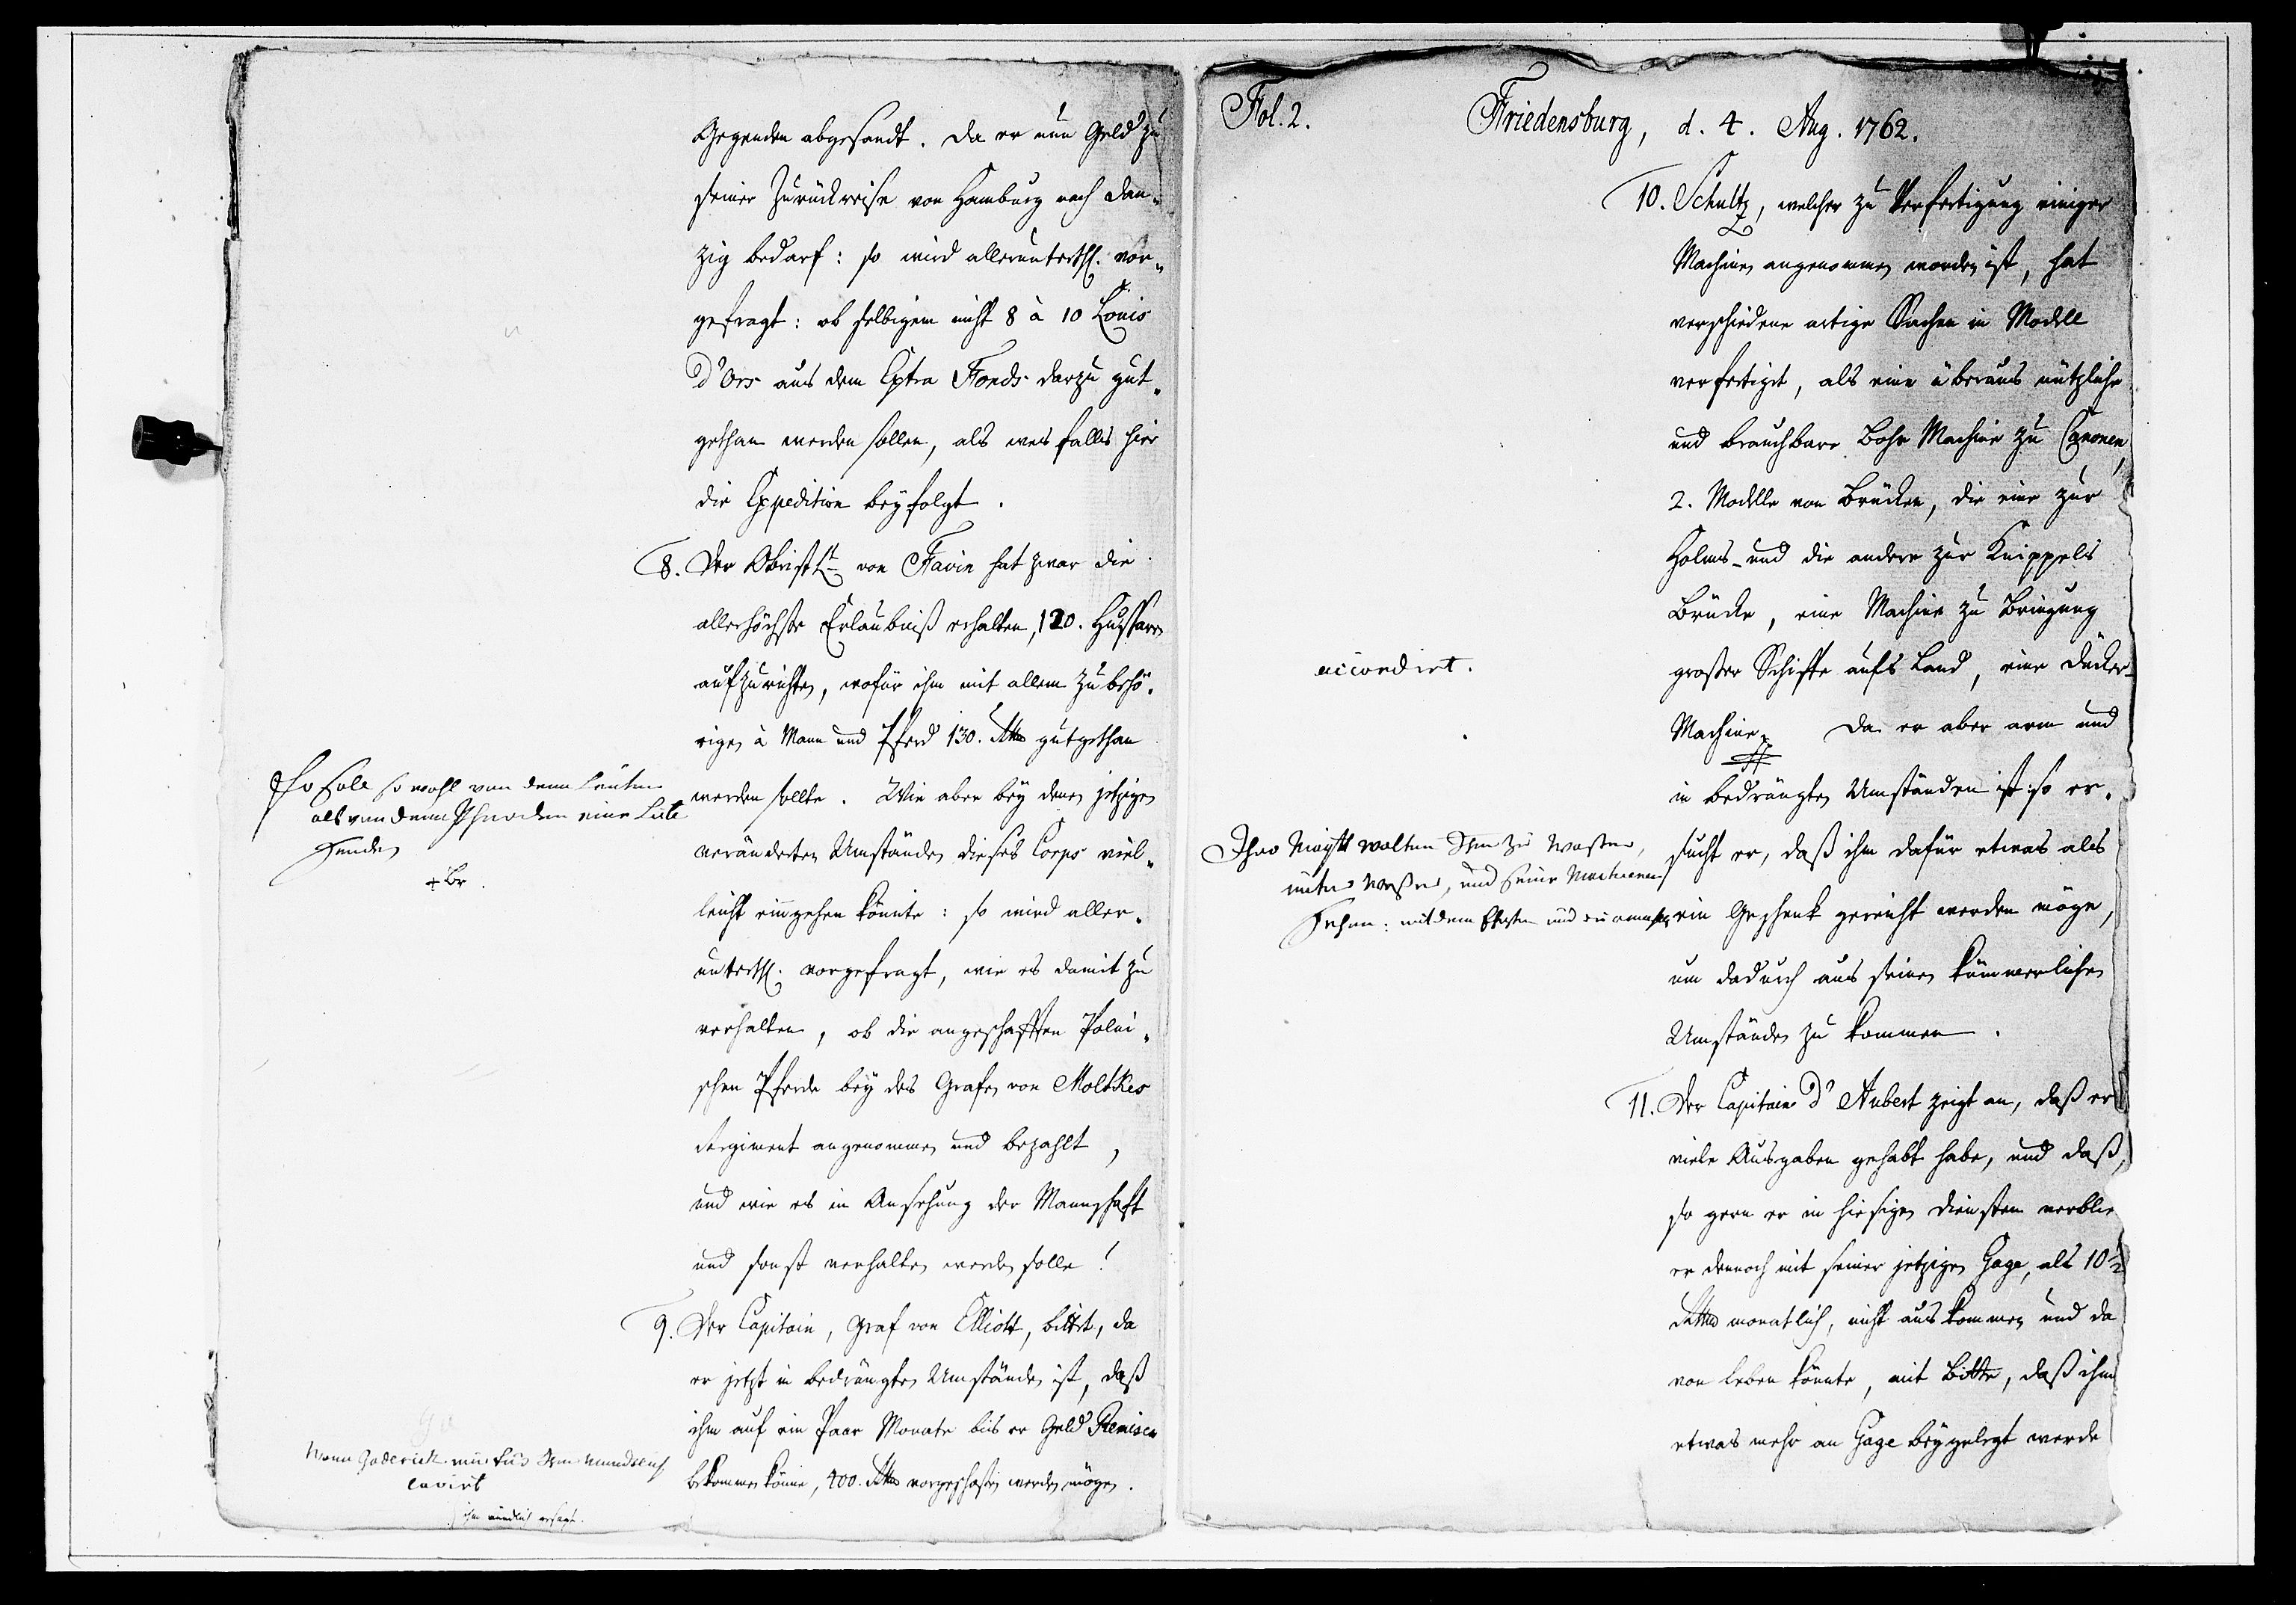 Gegenden abgesandt. Da er nun Geld zu
seiner Zurückreise von Hamburg nach Dan-
zig bedarf: so wird allerunterth. vor-
gefragt: ob selbigem nicht 8 à 10 Louis
d'Ors aus dem Extra Fonds darzu gut-
gethan werden sollen, als welchenfalls hier
die Expedition beyfolgt.
8. Der Obristlt von Favin hat zwar die
allerhöchste Erlaubniß erhalten, 120. Husaren
aufzurichten, wofür ihm mit allem Zubehö-
rigen à Mann und Pferd 130. Rthlr gutgethan
werden sollte. Wie aber bey denen jetzigen
veränderten Umständen dieses Corps viel-
leicht eingehen könnte: so wird aller-
unterth. vorgefragt, wie es damit zu
verhalten, ob die angeschafften Polni-
schen Pferde bey des Grafen von Moltkes
Regiment angenommen und bezahlt,
und wie es in Ansehung der Mannschaft
und sonst verhalten werden solle!
9. Der Capitain, Graf von Elliott, bittet, da
er jetzt in bedrängten Umständen ist, daß
ihm auf ein Paar Monate bis er Geld Remisen
bekommen könne, 400. Rthlr vorgeschossen werden mögen.
so wohl von denen Leuten
als von denen Pferden eine Liste
senden
ihm mündlich
Fol. 2.
Friedensburg, d. 4. Aug. 1762.
10. Schultz, welcher zu Verfertigung einiger
Machinen angenommen worden ist, hat
verschiedene artige Sachen in Modell
verfertiget, als eine überaus nützliche
und brauchbare Bohr Machine zu Canonen,
2. Modelle von Brücken, die eine zur
Holms- und die andere zur Knippels
Brücke, eine Machine zu Bringung
großer Schiffe aufs Land, eine Däucker-
Machine. Da er aber arm und
in bedrängten Umständen ist: so er-
sucht er, daß ihm dafür etwas als
ein Geschenk gereicht werden möge,
um dadurch aus seinen kümmerlichen
Umständen zu kommen.
11. Der Capitain d'Aubert zeigt an, daß er
viele Ausgaben gehabt habe, und daß,
so gern er in hiesigen Diensten verblie
er dennoch mit seiner jetzigen Gage, als 10½
Rthlr monatlich, nicht auskommen und da
von leben könnte, mit Bitte, daß ihm
etwas mehr an Gage beygelegt werde
accordirt.
Ihro Maytt wolten Ihn zu
und seine Machinen
Sehen: